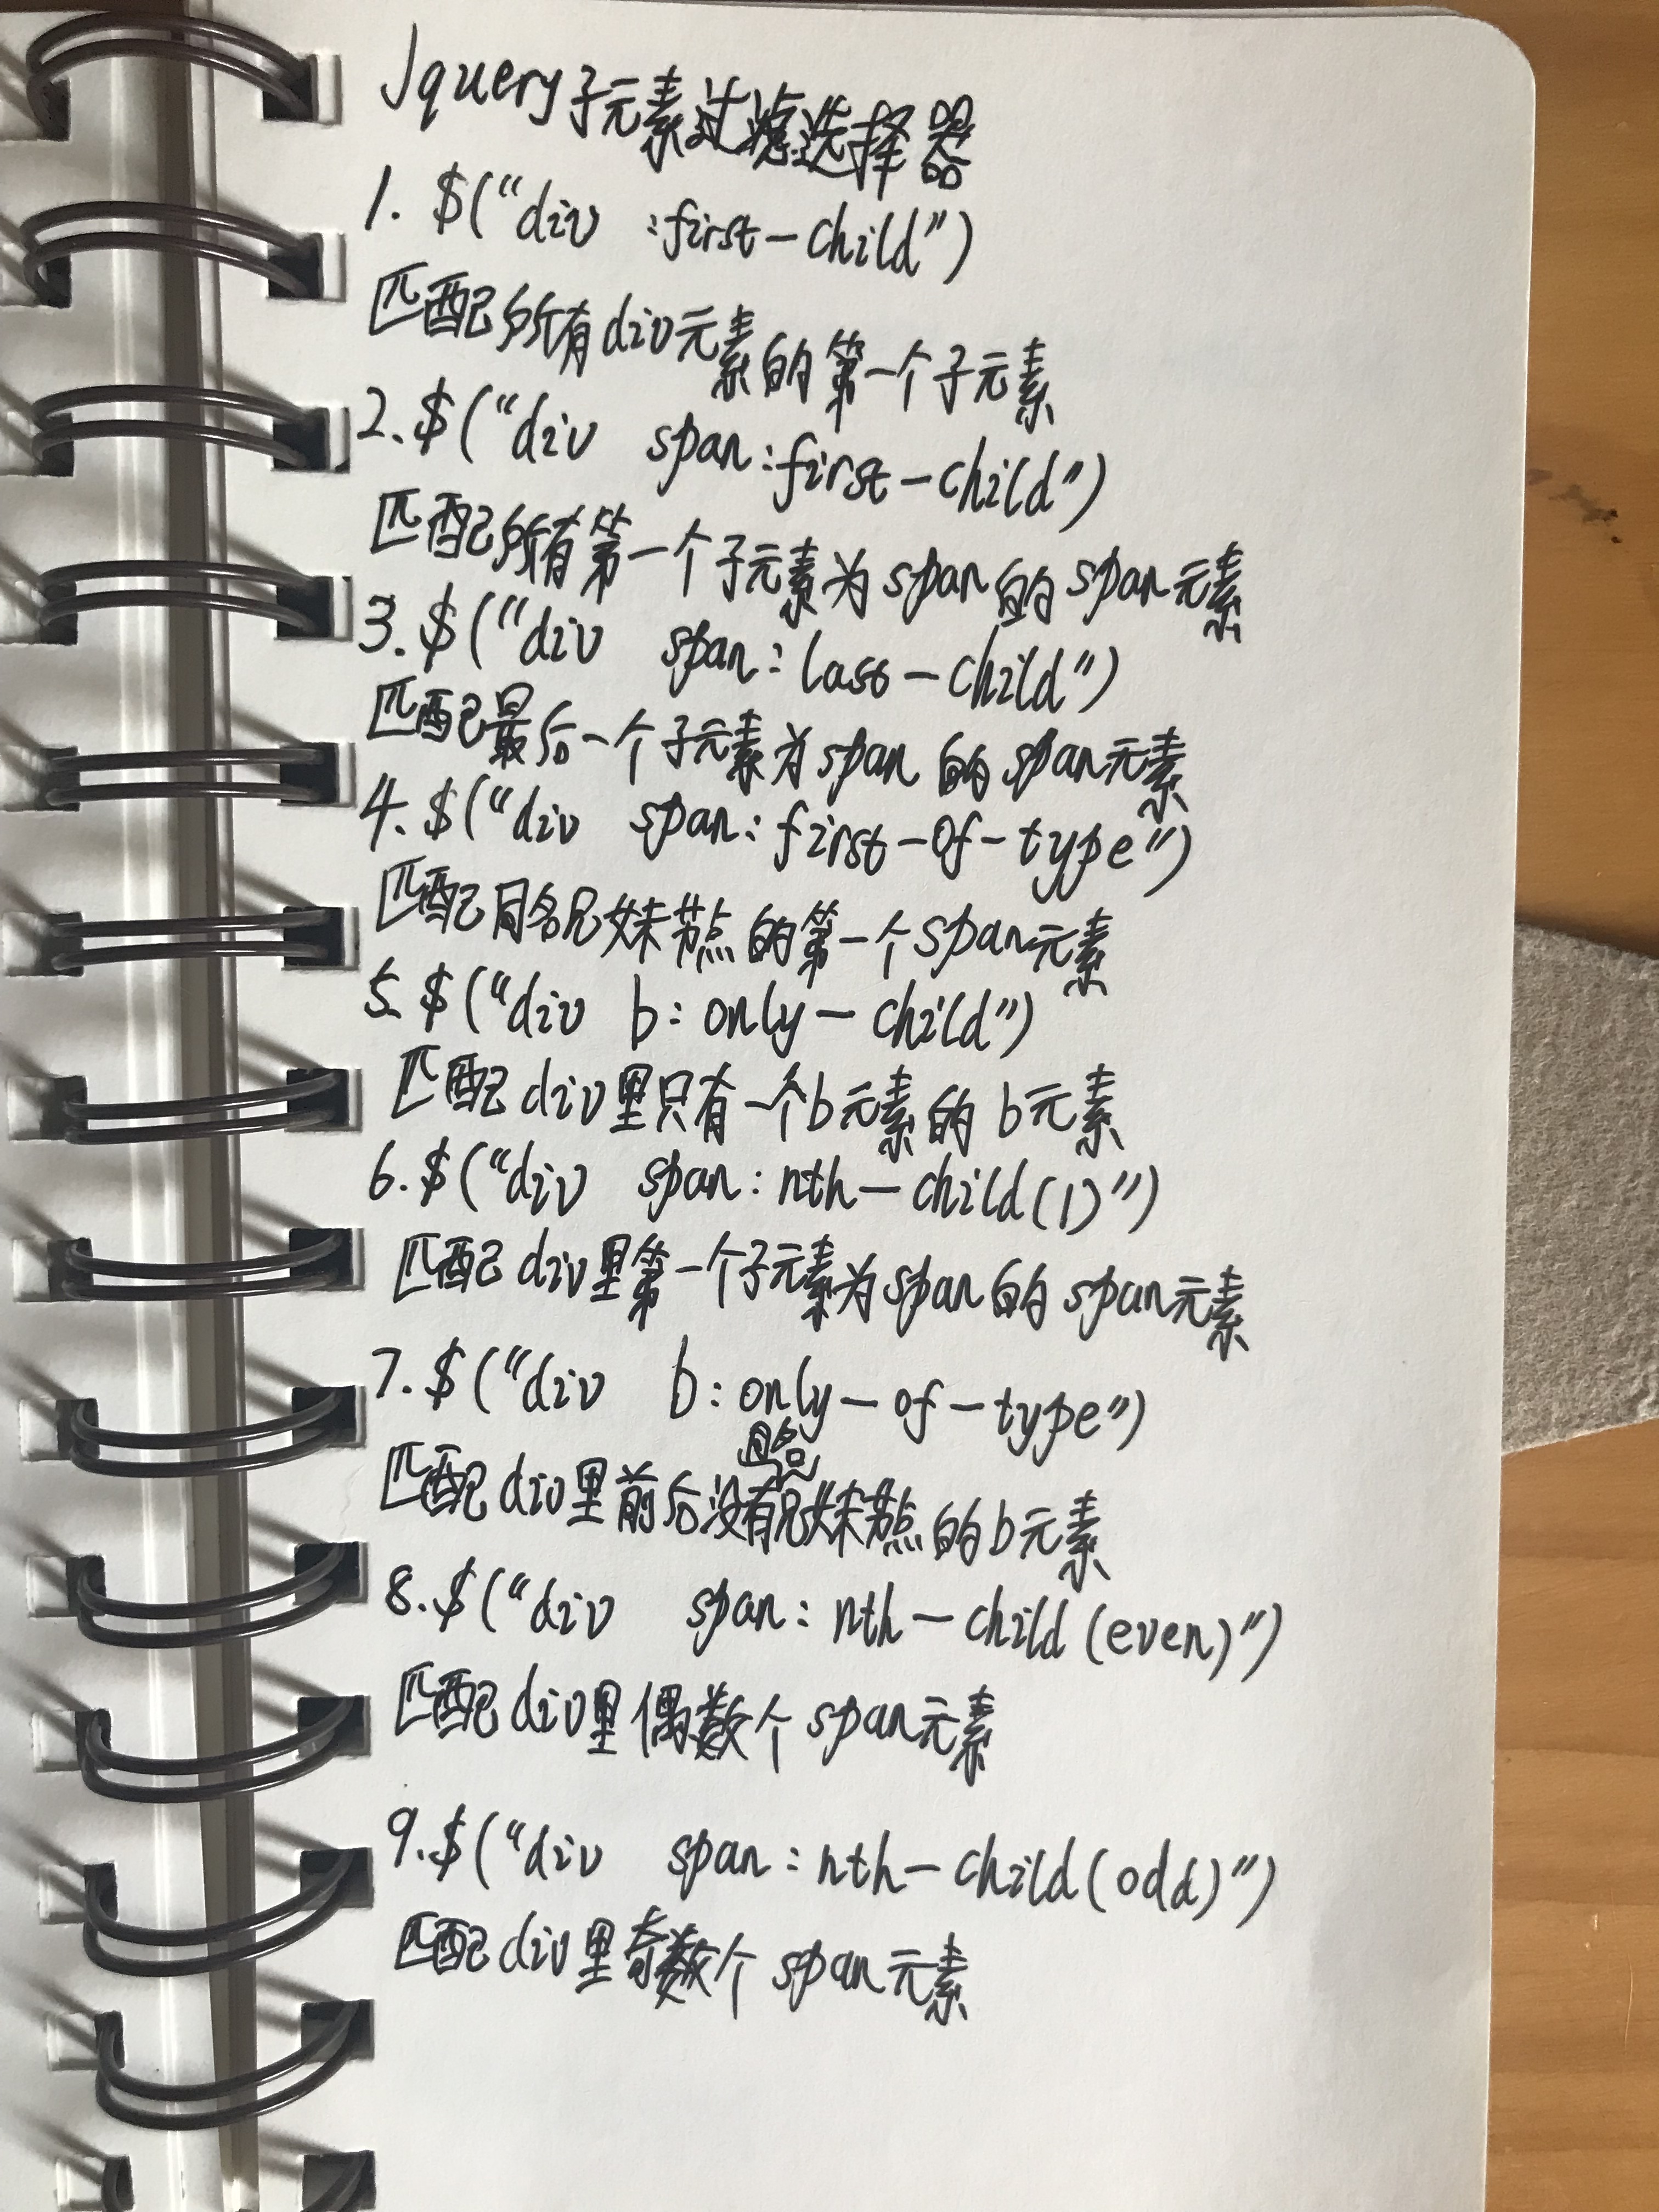 Jquery子元素过滤选择器
1. $("div :first-child")
匹配所有div元素的第一个子元素
2.$("div span:first-child")
匹配所有第一个子元素为span的span元素
3.$("div span:last-child")
匹配最后一个子元素为span的span元素
4.$("div span:first-of-type")
匹配同名兄妹节点的第一个span元素
5.$("div b:only-child")
匹配div里只有一个b元素的b元素
6.$("div span:nth-child(1)")
匹配div里第一个子元素为span的span元素
7.$("div b:only-of-type")
匹配div里前后没有同名兄妹节点的b元素
8.$("div span:nth-child(even)")
匹配div里偶数个span元素
9.$("div span:nth-child(odd)")
匹配div里奇数个span元素